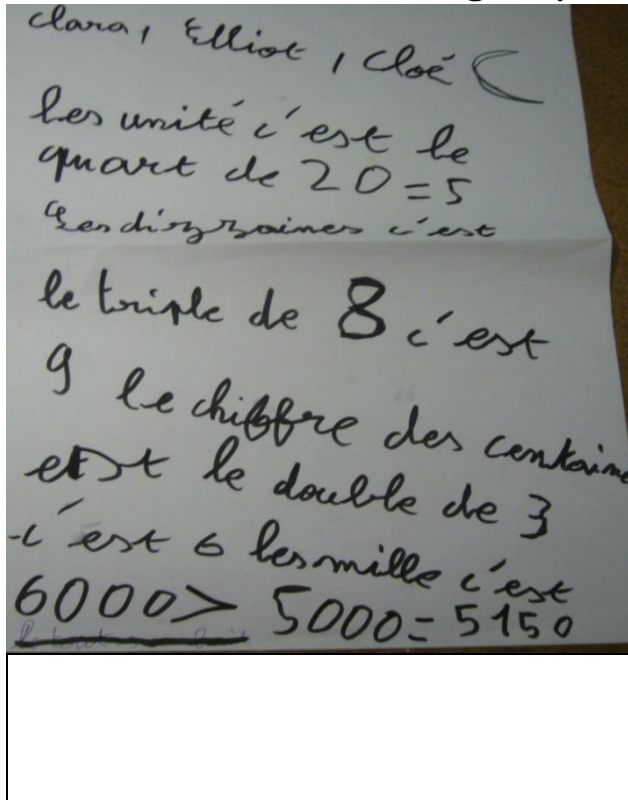 Clara, Elliot, Cloé
les unité c'est le
quart de 20=5
les dizzaines c'est
le triple de 8 c'est
9 le chiffre des centaine
est le double de 3
c'est 6 les mille c'est
6000> 5000= 5150